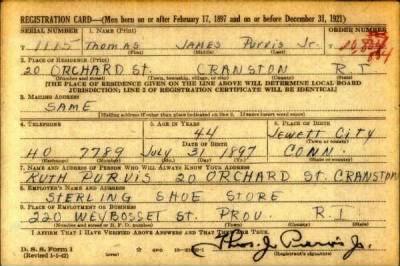 REGISTRATION CARD—(Men born on or after February 17, 1897 and on or before December 31, 1921)
SERIAL NUMBER 1. NAME (Print) ORDER NUMBER
T 1115 THOMAS JAMES PURVIS Jr.
(First) (Middle) (Last)
2. PLACE OF RESIDENCE (Print)
20 ORCHARD ST. CRANSTON R I
(Number and street) (Town, township, village, or city) (County) (State)
[THE PLACE OF RESIDENCE GIVEN ON THE LINE ABOVE WILL DETERMINE LOCAL BOARD
JURISDICTION; LINE 2 OF REGISTRATION CERTIFICATE WILL BE IDENTICAL]
3. MAILING ADDRESS
SAME
[Mailing address if other than place indicated on line 2. If same insert word same]
4. TELEPHONE 5. AGE IN YEARS 6. PLACE OF BIRTH
44 JEWETT CITY
DATE OF BIRTH (Town or county)
HO 7789 JULY 31 1897 CONN.
(Exchange) (Number) (Mo.) (Day) (Yr.) (State or country)
7. NAME AND ADDRESS OF PERSON WHO WILL ALWAYS KNOW YOUR ADDRESS
RUTH PURVIS 20 ORCHARD ST. CRANSTON
8. EMPLOYER'S NAME AND ADDRESS
STERLING SHOE STORE
9. PLACE OF EMPLOYMENT OR BUSINESS
220 WEYBOSSET ST. PROV. R.I
(Number and street or R. F. D. number) (Town) (County) (State)
I AFFIRM THAT I HAVE VERIFIED ABOVE ANSWERS AND THAT THEY ARE TRUE.
D. S. S. Form 1
(Revised 1-1-42) (over)
Thos. J. Purvis Jr.
(Registrant's signature)